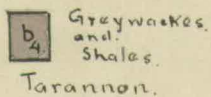 b4.
Greywackes.
and.
Shales.
Tarannon.